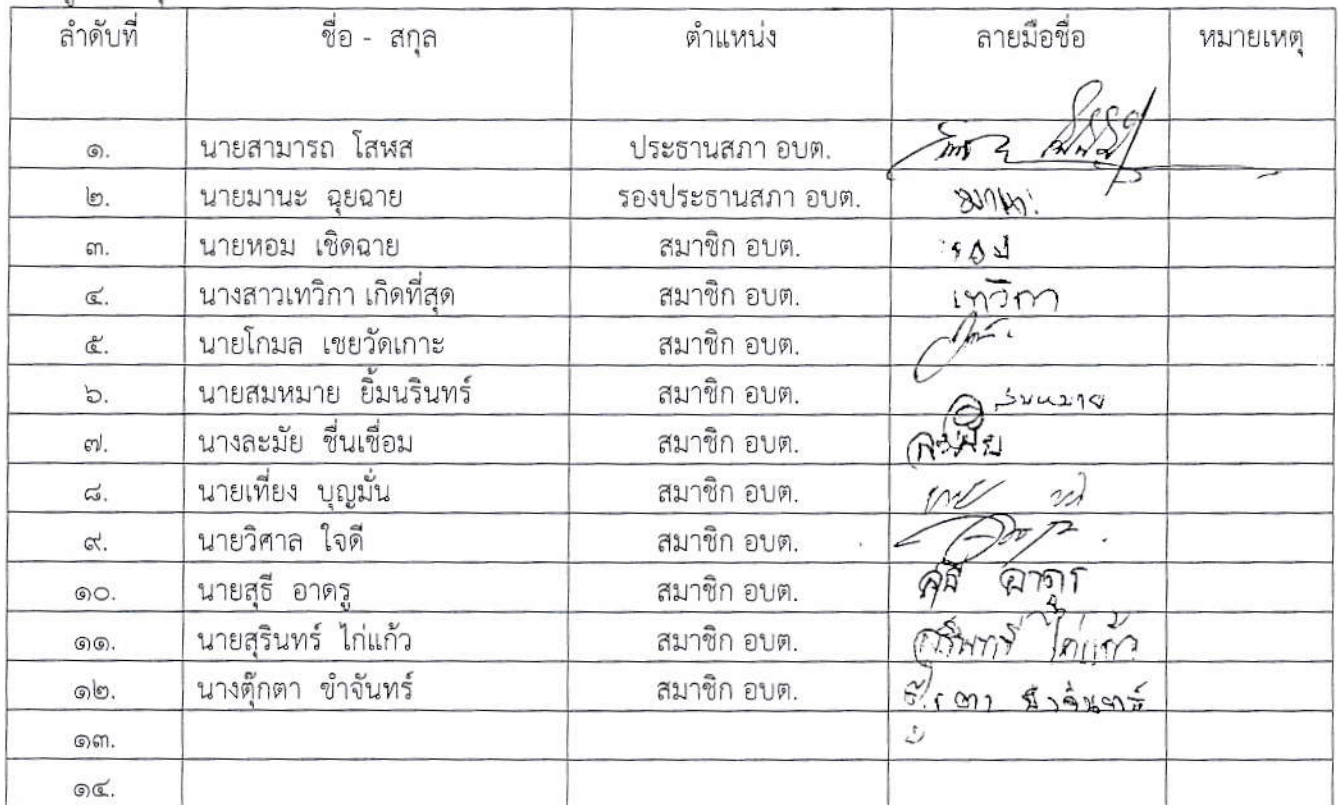 ลำดับที่ ชื่อ - สกุล ตำแหน่ง ลายมือชื่อ หมายเหตุ
๑. นายสามารถ โสฬส ประธานสภา อบต.
๒. นายมานะ ฉุยฉาย รองประธานสภา อบต. มานะ
๓. นายหอม เชิดฉาย สมาชิก อบต.
๔. นางสาวเทวิกา เกิดที่สุด สมาชิก อบต. เทวิกา
๕. นายโกมล เชยวัดเกาะ สมาชิก อบต.
๖. นายสมหมาย ยิ้มนรินทร์ สมาชิก อบต. สมหมาย
๗. นางละมัย ชื่นเชื่อม สมาชิก อบต. ละมัย
๘. นายเที่ยง บุญมั่น สมาชิก อบต.
๙. นายวิศาล ใจดี สมาชิก อบต.
๑๐. นายสุธี อาดรู สมาชิก อบต. สุธี อาดรู
๑๑. นายสุรินทร์ ไก่แก้ว สมาชิก อบต. สุรินทร์ ไก่แก้ว
๑๒. นางตุ๊กตา ขำจันทร์ สมาชิก อบต.
๑๓.
๑๔.